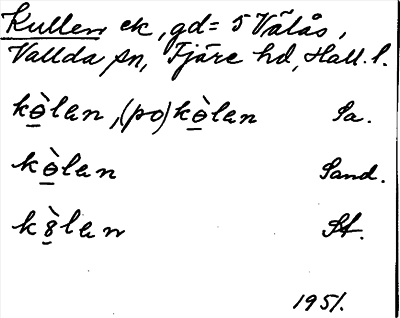 Kullen ek, gd = 5 Valås,
Vallda sn, Fjäre hd, Hall. l.
kɵ̱̀lan, (po) kɵ̱̀lan Sa.
kɵ̱̀lan Sand.
k8̱̀lan St.
1951.